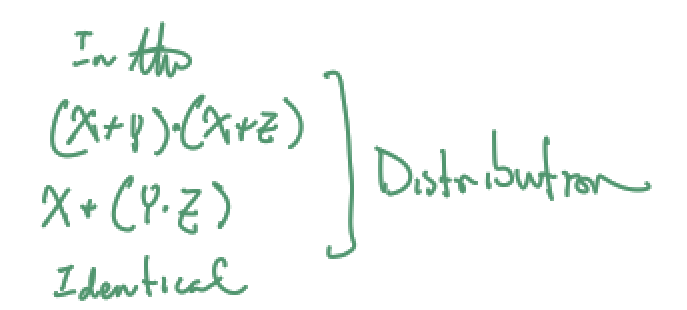 In this
(X+Y)·(X+Z)
X+(Y·Z)
Identical
Distribution